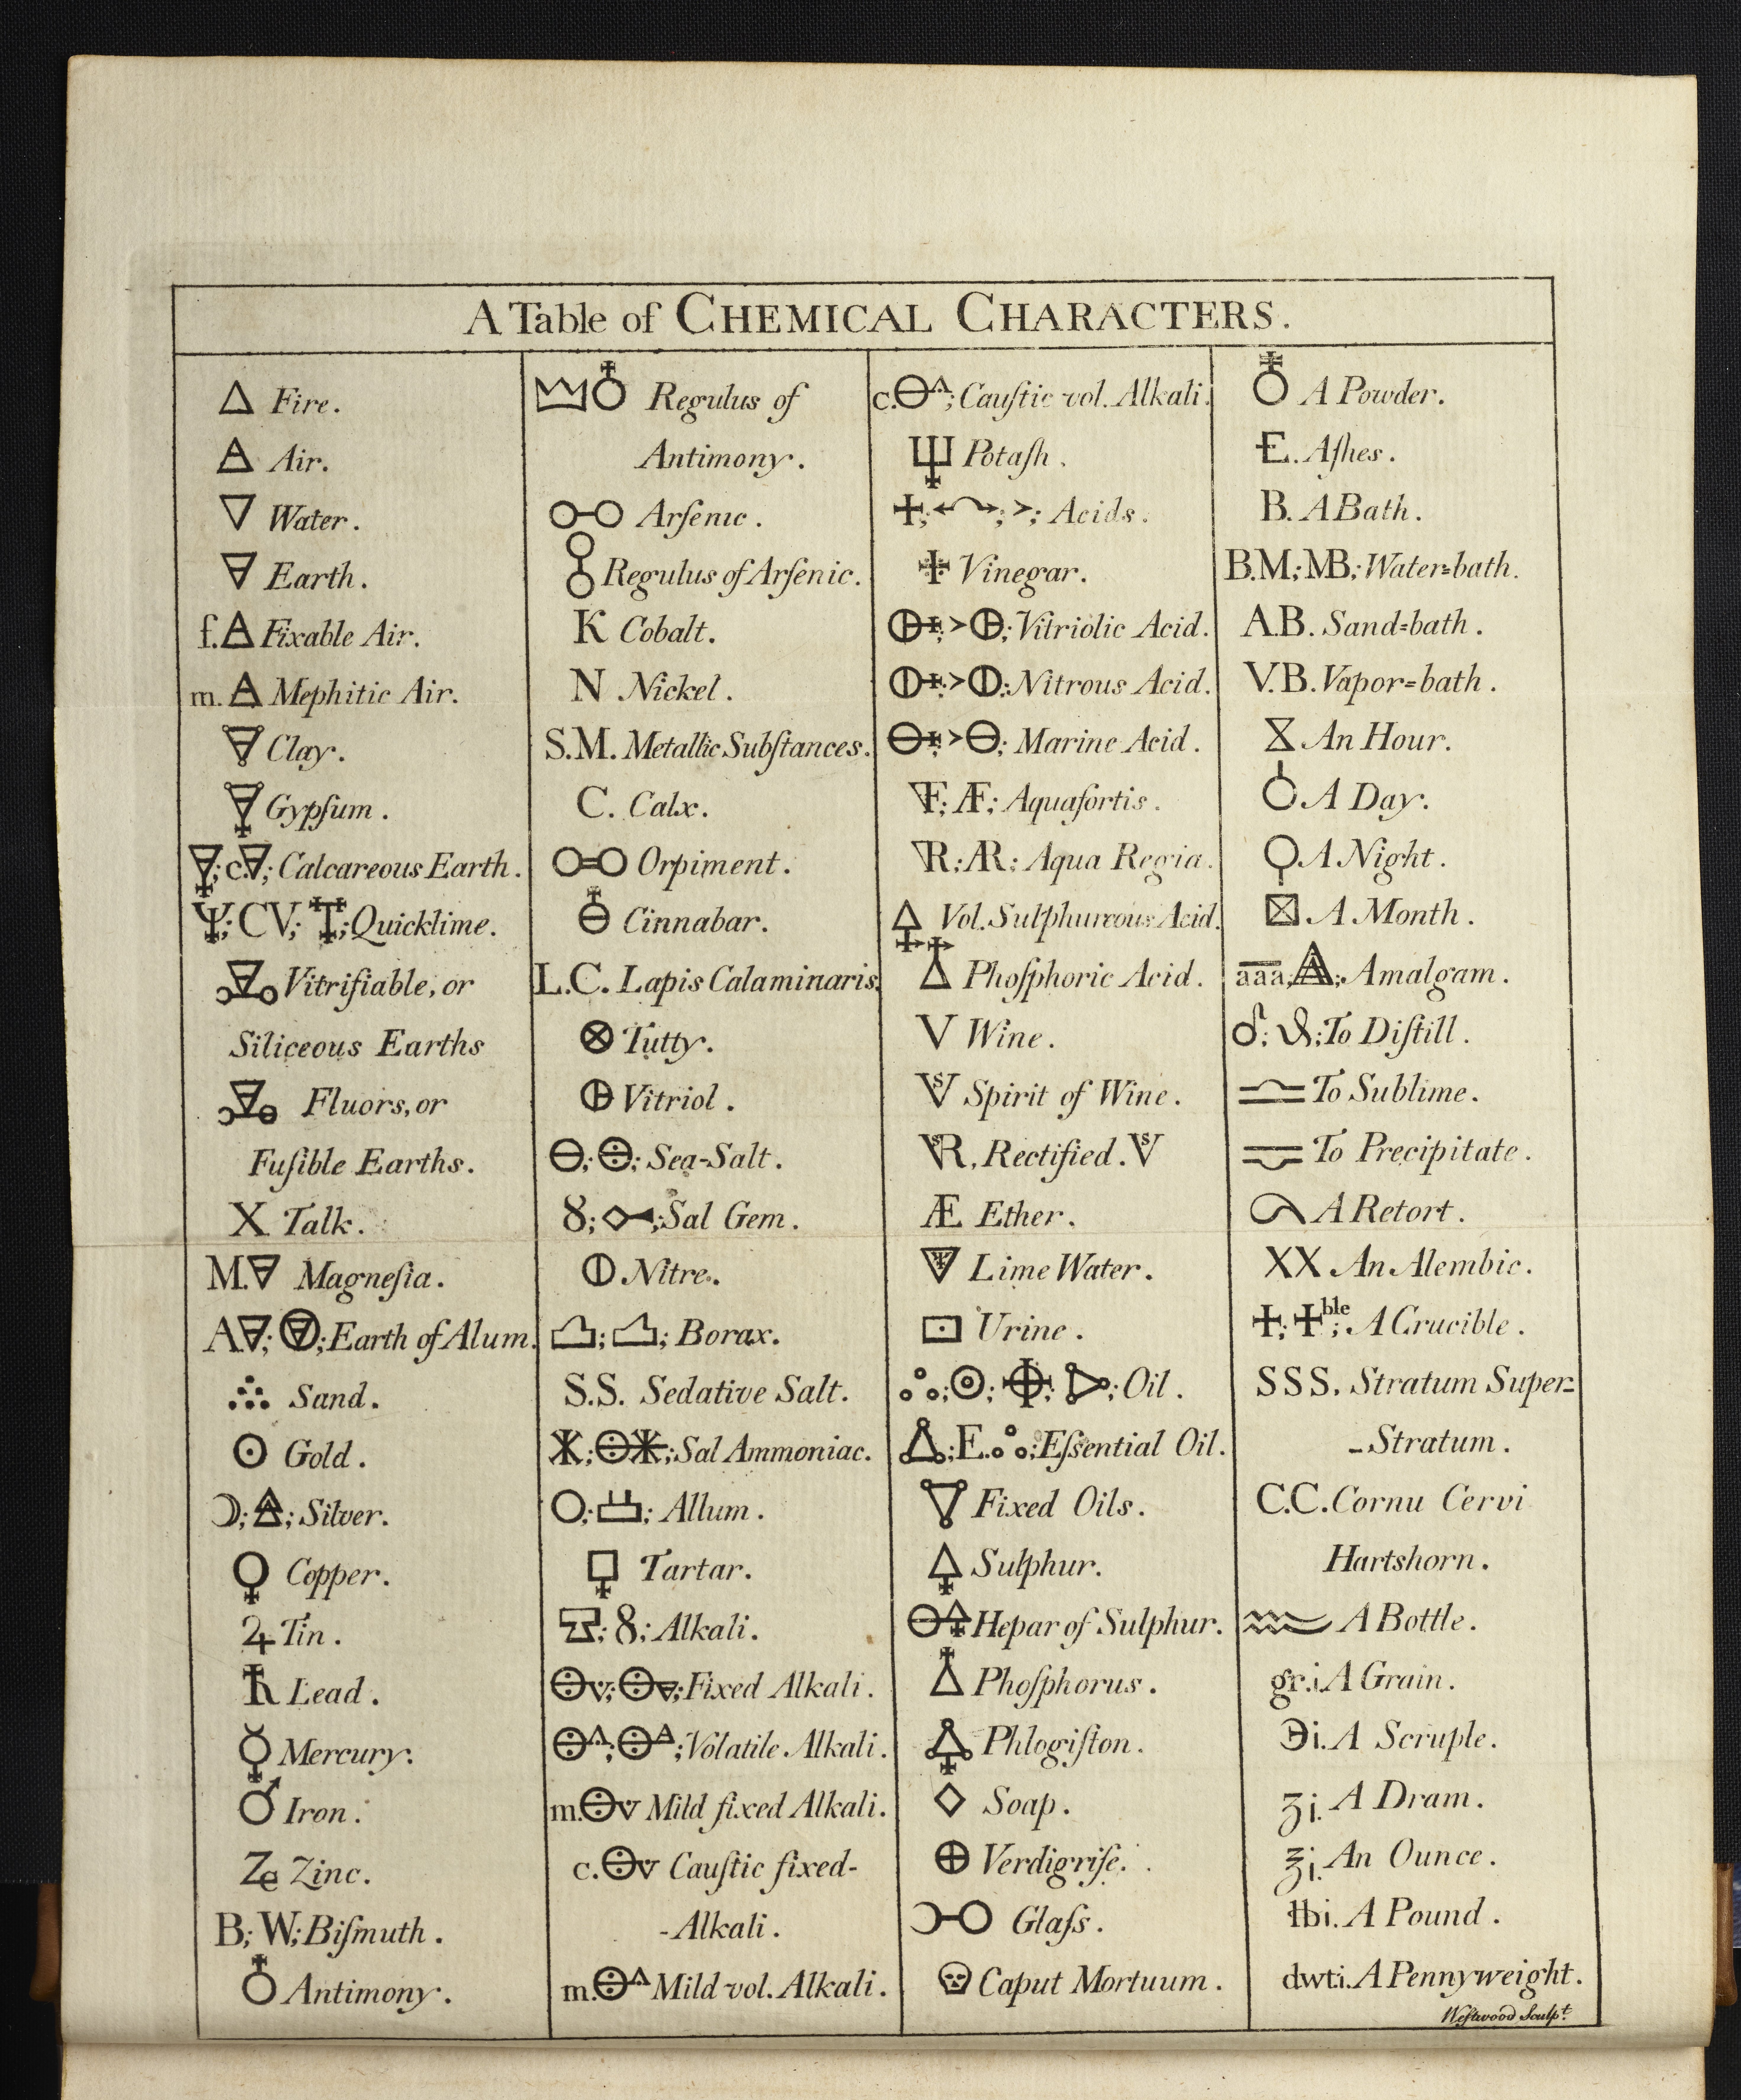 A Table of CHEMICAL CHARACTERS.
△ Fire.
🜁 Air.
▽ Water.
🜃 Earth.
f.🜁 Fixable Air.
m.🜁 Mephitic Air.
Clay.
Gypſum.
; c.🜃; Calcareous Earth.
; CV; ; Quicklime.
Vitrifiable, or
Siliceous Earths
Fluors, or
Fuſible Earths.
X Talk.
M.🜃 Magneſia.
A🜃; ; Earth of Alum.
Sand.
☉ Gold.
☽; ; Silver.
♀ Copper.
♃ Tin.
♄ Lead.
☿ Mercury.
♂ Iron.
Ze Zinc.
B; W; Biſmuth.
♁ Antimony.
♁ Regulus of
Antimony.
Arſenic.
Regulus of Arſenic.
K Cobalt.
N Nickel.
S.M. Metallic Subſtances.
C. Calx.
Orpiment.
Cinnabar.
L.C. Lapis Calaminaris.
⊗ Tutty.
Vitriol.
⊖; ; Sea-Salt.
8; ; Sal Gem.
⦶ Nitre.
; ; Borax.
S.S. Sedative Salt.
; ; Sal Ammoniac.
○; ; Allum.
Tartar.
; 8; Alkali.
; ; Fixed Alkali.
; ; Volatile Alkali.
m. Mild fixed Alkali.
c. Cauſtic fixed-
-Alkali.
m. Mild vol. Alkali.
c.⊖; Cauſtic vol. Alkali.
Potaſh.
+; ; >; Acids.
Vinegar.
; >; Vitriolic Acid.
; >⦶; Nitrous Acid.
; >⊖; Marine Acid.
▽F; ÆF; Aquafortis.
▽R; AR; Aqua Regia.
Vol. Sulphureous Acid.
Phoſphoric Acid.
V Wine.
V Spirit of Wine.
R. Rectified. V
Æ Ether.
Lime Water.
Urine.
; ☉; ; ; Oil.
; E. ; Eſsential Oil.
Fixed Oils.
🜍 Sulphur.
⊖🜍 Hepar of Sulphur.
Phoſphorus.
Phlogiſton.
◇ Soap.
⊕ Verdigriſe.
Glaſs.
Caput Mortuum.
A Powder.
E. Aſhes.
B. A Bath.
B.M; MB; Water=bath.
A.B. Sand=bath.
V.B. Vapor=bath.
An Hour.
A Day.
A Night.
A Month.
aaa; ; Amalgam.
; ; To Diſtill.
To Sublime.
To Precipitate.
A Retort.
XX An Alembic.
+; +ble; A Crucible.
SSS. Stratum Super=
-Stratum.
C.C. Cornu Cervi
Hartshorn.
A Bottle.
gr.i. A Grain.
℈i. A Scruple.
ʒi. A Dram.
℥i. An Ounce.
℔i. A Pound.
dwt.i. A Pennyweight.
Weſtwood Sculpt.